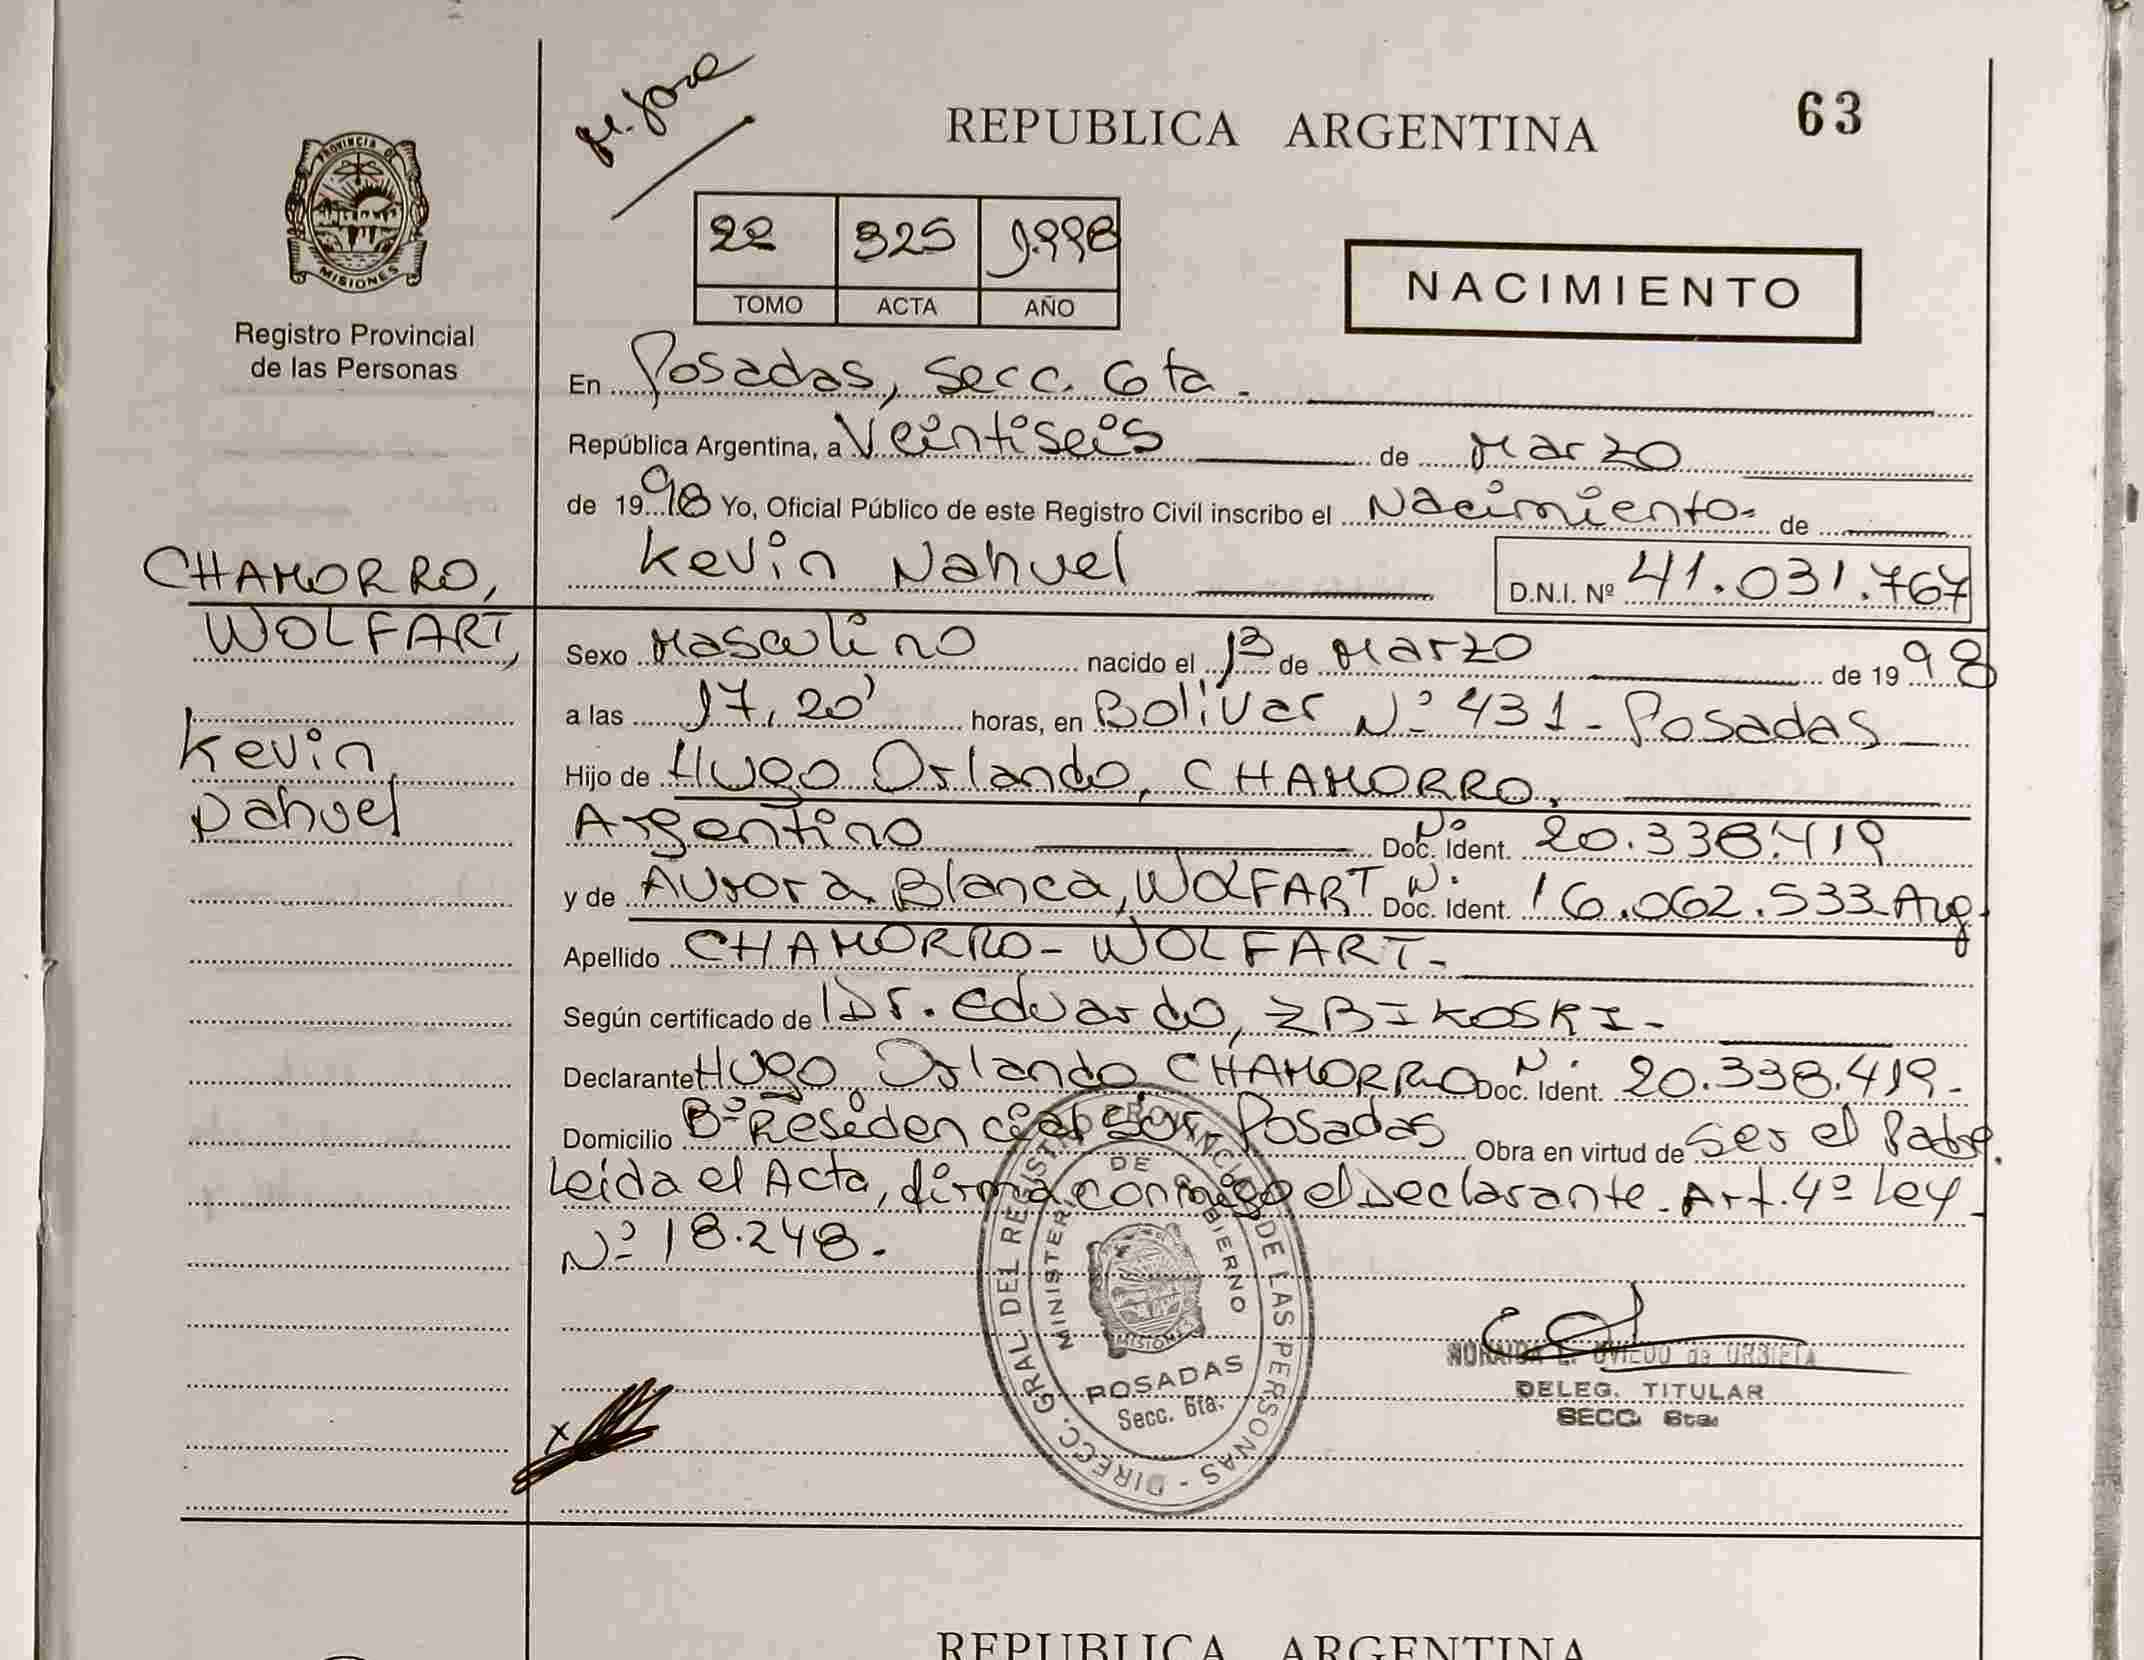 M. Jose
REPUBLICA ARGENTINA
63
PROVINCIA DE
MISIONES
Registro Provincial
de las Personas
22 325 1.998
TOMO ACTA AÑO
NACIMIENTO
En Posadas, Secc. 6ta.
República Argentina, a Veintiseis de Marzo
de 1998 Yo, Oficial Público de este Registro Civil inscribo el Nacimiento- de
Kevin Nahuel D.N.I. Nº 41.031.767
CHAMORRO,
WOLFART,
Kevin
Nahuel
Sexo Masculino nacido el 13 de Marzo de 1998
a las 17,20' horas, en Bolivar Nº 431 - Posadas
Hijo de Hugo Orlando, CHAMORRO,
Argentino Nº Doc. Ident. 20.338.419
y de Aurora Blanca, WOLFART Nº Doc. Ident. 16.062.533 Arg.
Apellido CHAMORRO - WOLFART -
Según certificado de Dr. Eduardo, ZBIKOSKI -
Declarante Hugo Orlando CHAMORRO Nº Doc. Ident. 20.338.419 -
Domicilio Bº Residencial Sur Posadas Obra en virtud de Ser el Padre.
Leida el Acta, firma conmigo el Declarante. Art. 4º Ley
Nº 18.248.
DIRECC. GRAL DEL REGISTRO PROVINCIAL DE LAS PERSONAS -
MINISTERIO DE GOBIERNO
MISIONES
POSADAS
Secc. 6ta.
NORAIDA E. OVIEDO de URBIETA
DELEG. TITULAR
SECC. 6ta.
x
REPUBLICA ARGENTINA